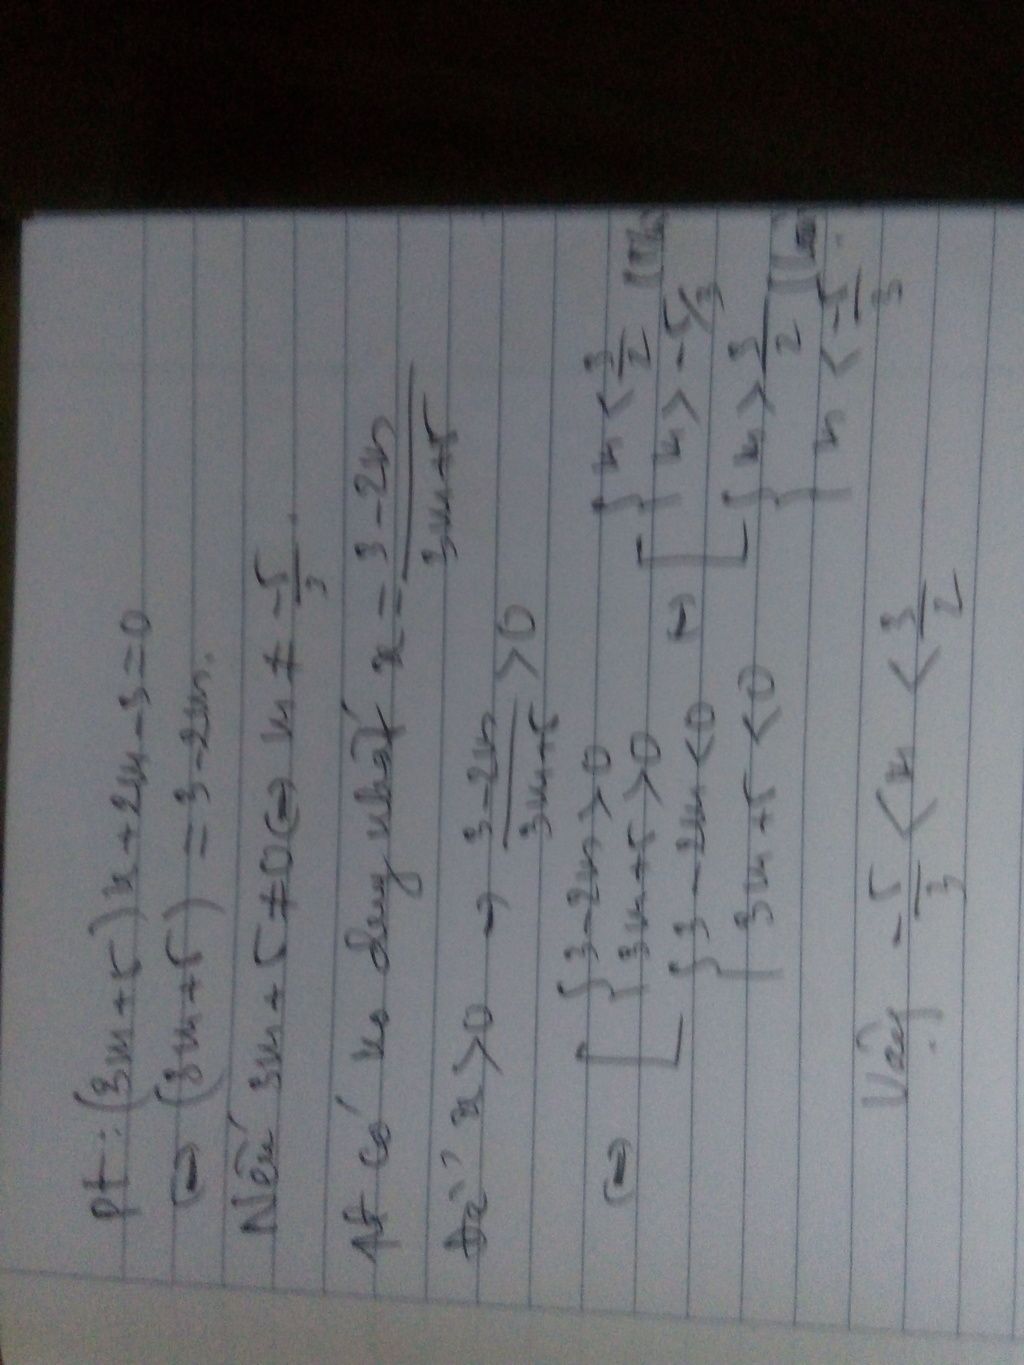 pt: (3m+5)x+2m-3=0
⇔ (3m+5) = 3-2m.
Nếu 3m+5≠0 ⇔ m ≠ -5/3.
pt có no duy nhất x = (3-2m)/(3m+5)
Để x>0 → (3-2m)/(3m+5) >0
⇔ [ { 3-2m>0 ⇔ [ { m < 3/2
3m+5>0 m > -5/3
{ 3-2m<0 { m > 3/2
3m+5<0 m < -5/3
Vậy -5/3 < m < 3/2